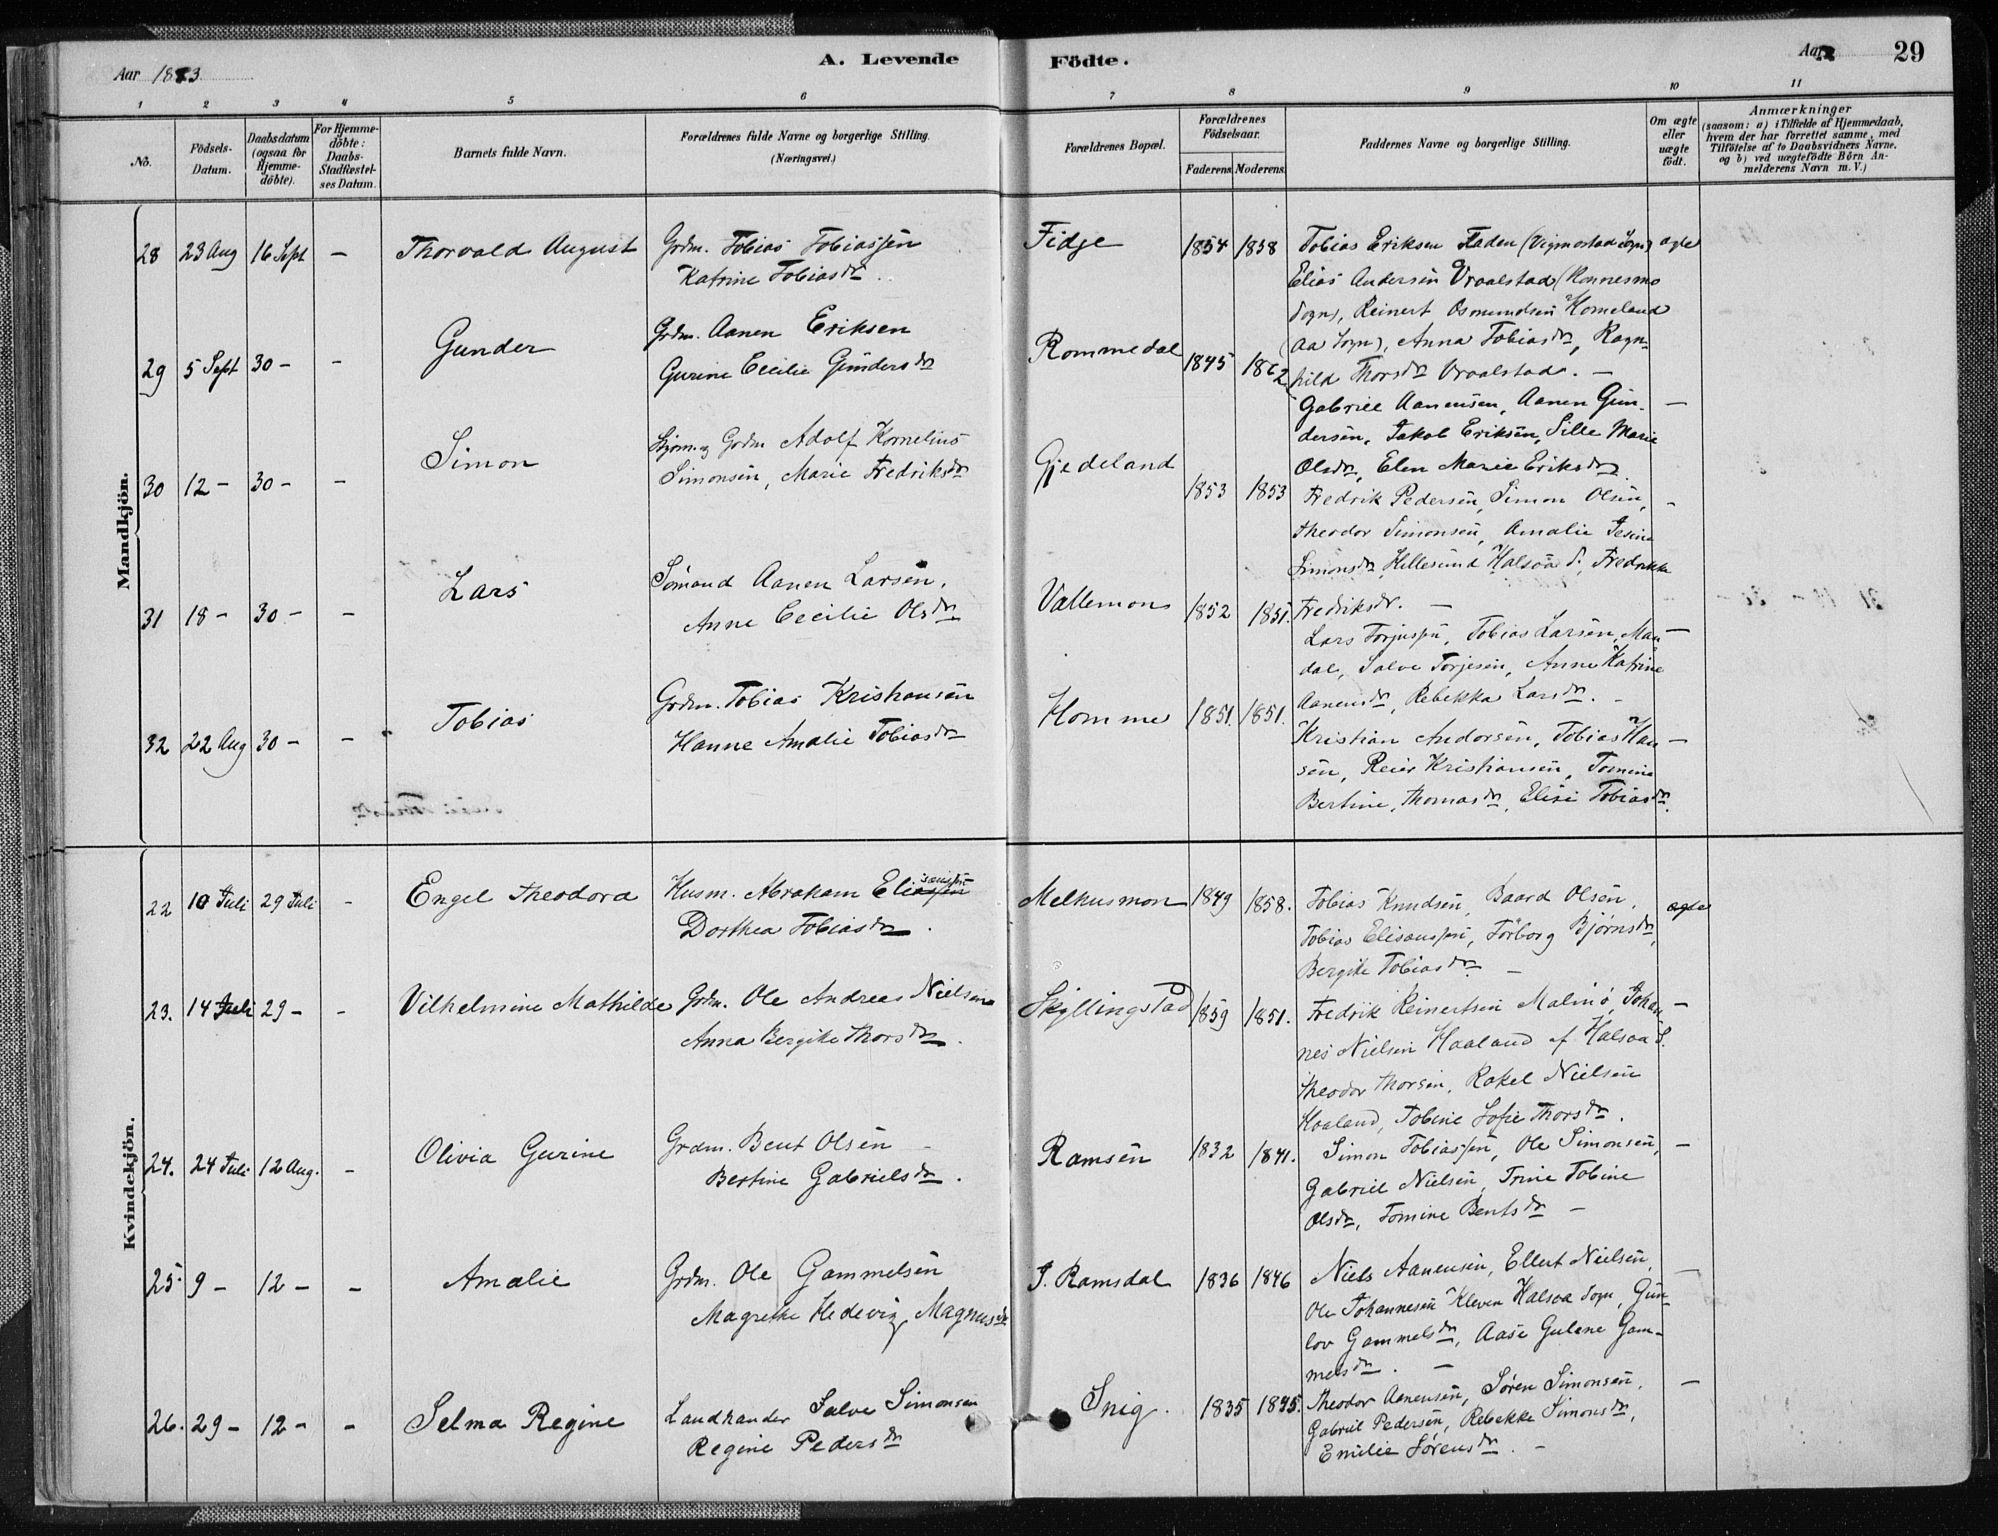 Aar 1883.
A. Levende
Födte.
Aar
29
1 2 3 4 5 6 7 8 9 10 11
No.
Födsels-Datum.
Daabsdatum (ogsaa for Hjemme-döbte).
For Hjemme-döbte: Daabs-Stadfæstel-ses Datum.
Barnets fulde Navn.
Forældrenes fulde Navne og borgerlige Stilling.
(Næringsvei.)
Forældrenes Bopæl.
Forældrenes Födselsaar.
Faderens. Moderens.
Faddernes Navne og borgerlige Stilling.
Om ægte eller uægte födt.
Anmærkninger
(saasom: a) i Tilfælde af Hjemmedaab,
hvem der har forrettet samme, med
Tilföielse af to Daabsvidners Navne.
og b) ved uægtefödte Börn An-
melderens Navn m. V.)
Mandkjön.
28 23 Aug 16 Sept – Thorvald August
Grdm. Tobias Tobiassen
Katrine Tobiasdr.
Fidje 1854 1858
Tobias Eriksen Faden (Vigmostad Sogn) ægte
Elias Andersen Vraalstad (Konnesmo
Sogn), Reinert Osmundsen Homeland
(Aa Sogn), Anna Tobiasdr, Ragn-
hild Thorsdr Vraalstad. –
29 5 Sept 30 – – Gunder
Grdm. Aanen Eriksen
Gurine Cecilie Gundersdr
Rommedal 1845 1862
Gabriel Aanensen, Aanen Gun- –
dersen, Jakob Eriksen, Sille Marie
Olsdr, Elen Marie Eriksdr.
30 12 – 30 – – Simon
Grdm Adolf Kornelius
Simonsen, Marie Fredriksdr
Gjedeland 1853 1853
Fredrik Pedersen, Simon Olsen, –
Theodor Simonsen, Amalie Jesine
Simonsdr Hillesund Halsaa S., Fredrikke
Fredriksdr. –
31 18 – 30 – – Lars
Sömand Aanen Larsen.
Anne Cecilie Olsdr
Vallemon 1852 1851.
Lars Torjussen, Tobias Larsen, Man- –
dal, Salve Torjesen, Anne Katrine
Aanensdr, Rebekka Larsdr. –
32 22 Aug 30 – – Tobias
Grdm. Tobias Kristiansen
Hanne Amalie Tobiasdr
Homme 1851. 1851.
Kristian Andersen, Tobias Han- –
sen, Reier Kristiansen, Tomine
Bertine, Thomasdr, Elise Tobiasdr.
Kvindekjön.
22 10 Juli 29 Juli – Engel Theodora
Husm. Abraham Eliassen
Dorthea Tobiasdr.
Melhusmon 1849 1858.
Tobias Knudsen, Baard Olsen, ægte
Tobias Elisaussen, Törborg Bjørnsdr,
Bergite Tobiasdr. –
23. 14 Juli 29 – – Vilhelmine Mathilde
Grdm. Ole Andreas Nielsen
Anna Bergitte Thorsdr.
Skyllingstad 1859 1851.
Fredrik Reinertsen Malmö, Johan- –
nes Nielsen Haaland af Halsaa S.
Theodor Thorsen, Rakel Nielsen
Haaland, Tobine Sofie Thorsdr.
24. 24 Juli 12 Aug. – Olivia Gurine
Grdm. Bent Olsen –
Bertine Gabrielsdr.
Ramsen 1832 1841.
Simon Tobiassen, Ole Simonsen, –
Gabriel Nielsen, Trine Tobine
Olsdr, Tomine Bentsdr –
25. 9 – 12 – – Amalie
Grdm. Ole Gammelsen
Magrethe Hedevig Magnusdr
I. Ramsdal 1836 1846
Niels Aanensen, Ellert Nielsen, –
Ole Johannesen Kleven Halsaa Sogn, Gun-
lov Gammelsdr, Aase Gulene Gam-
melsdr. –
26. 29 – 12 – – Selma Regine
Landhandler Salve Simonsen
Regine Pedersdr
Snig. 1835 1845.
Theodor Aanensen, Sören Simonsen, –
Gabriel Pedersen, Rebekke Simonsdr,
Emilie Sörensdr. –